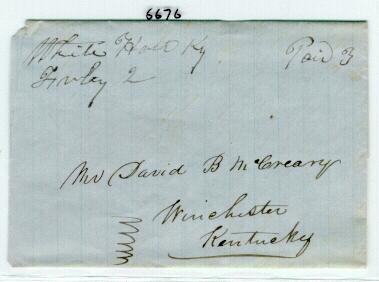 6676
White Hall Ky
Paid 3
July 2
Mr David B McCreary
Winchester
Kentucky